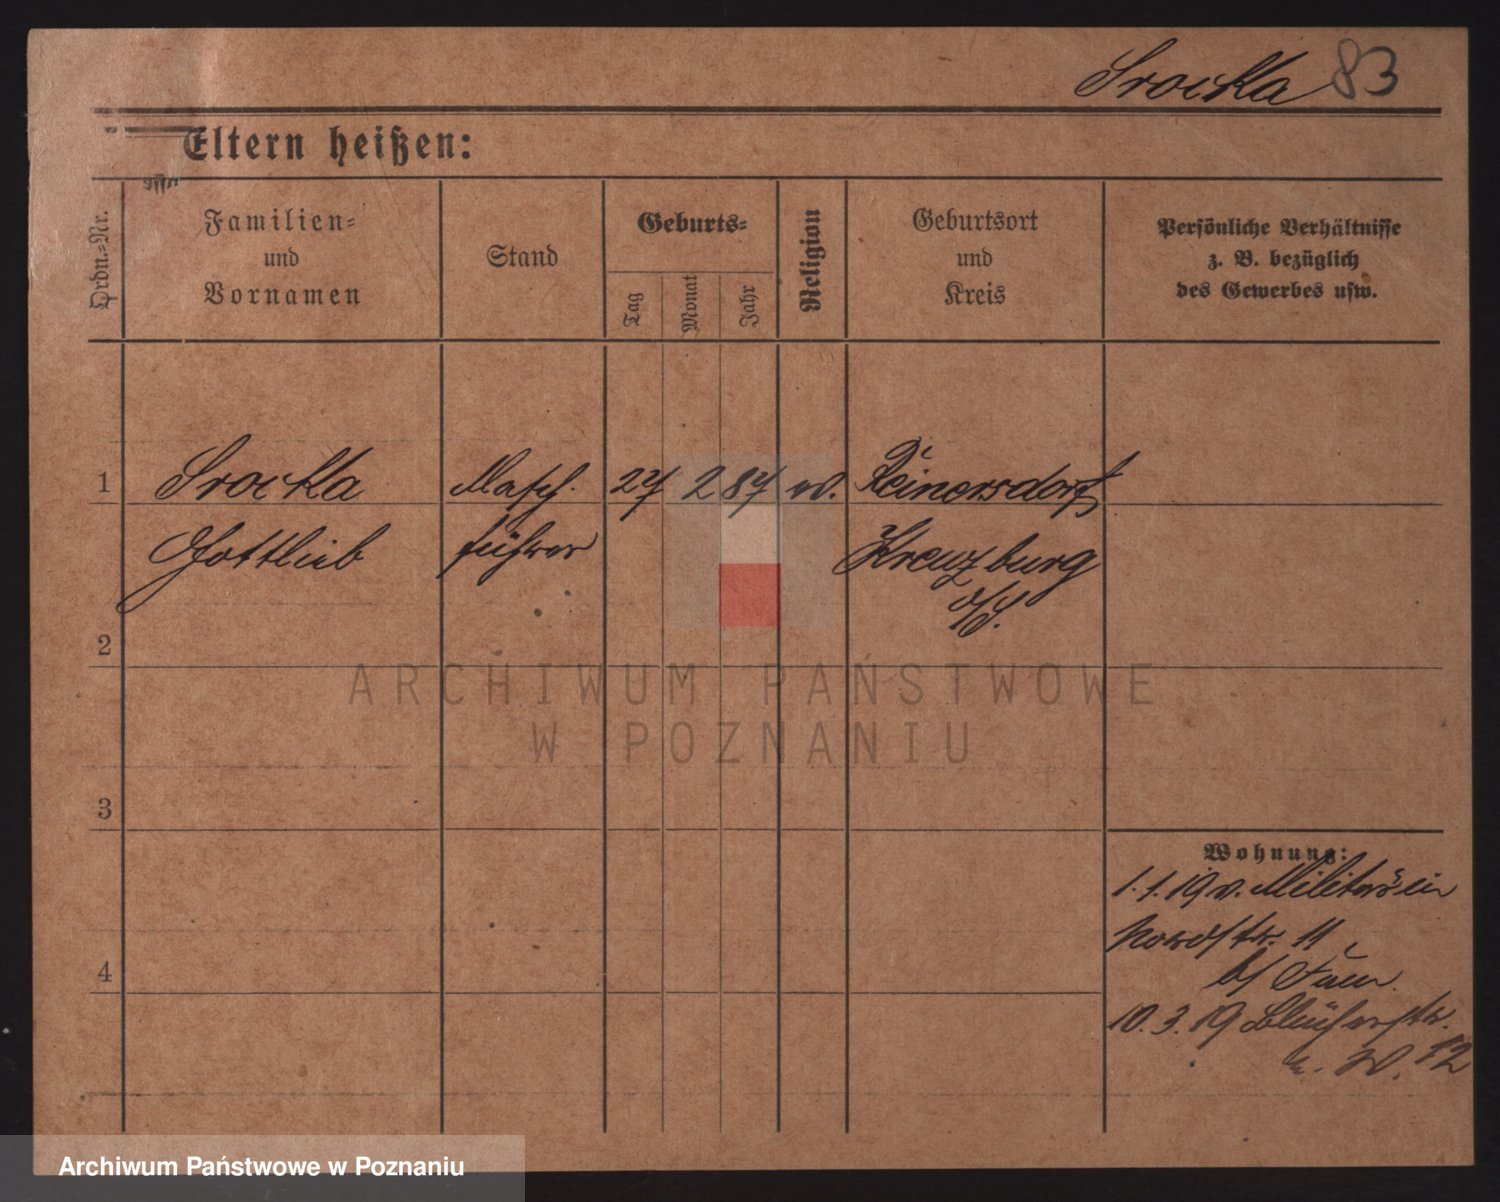 Srocka 83
Eltern heißen:
Ordn.-Nr.
Familien-
und
Vornamen
Stand
Geburts-
Tag
Monat
Jahr
Religion
Geburtsort
und
Kreis
Persönliche Verhältnisse
z. B. bezüglich
des Gewerbes usw.
1 Srocka Masch. 27 2 87 ev. Reinersdorf
Gottlieb führer Kreuzburg
o/S.
2
3
4
Wohnung:
1.1.19 v. Militär ein
Nordstr. 11
b/
10.3.19 Blücherstr.
12
ARCHIWUM PAŃSTWOWE
W POZNANIU
Archiwum Państwowe w Poznaniu